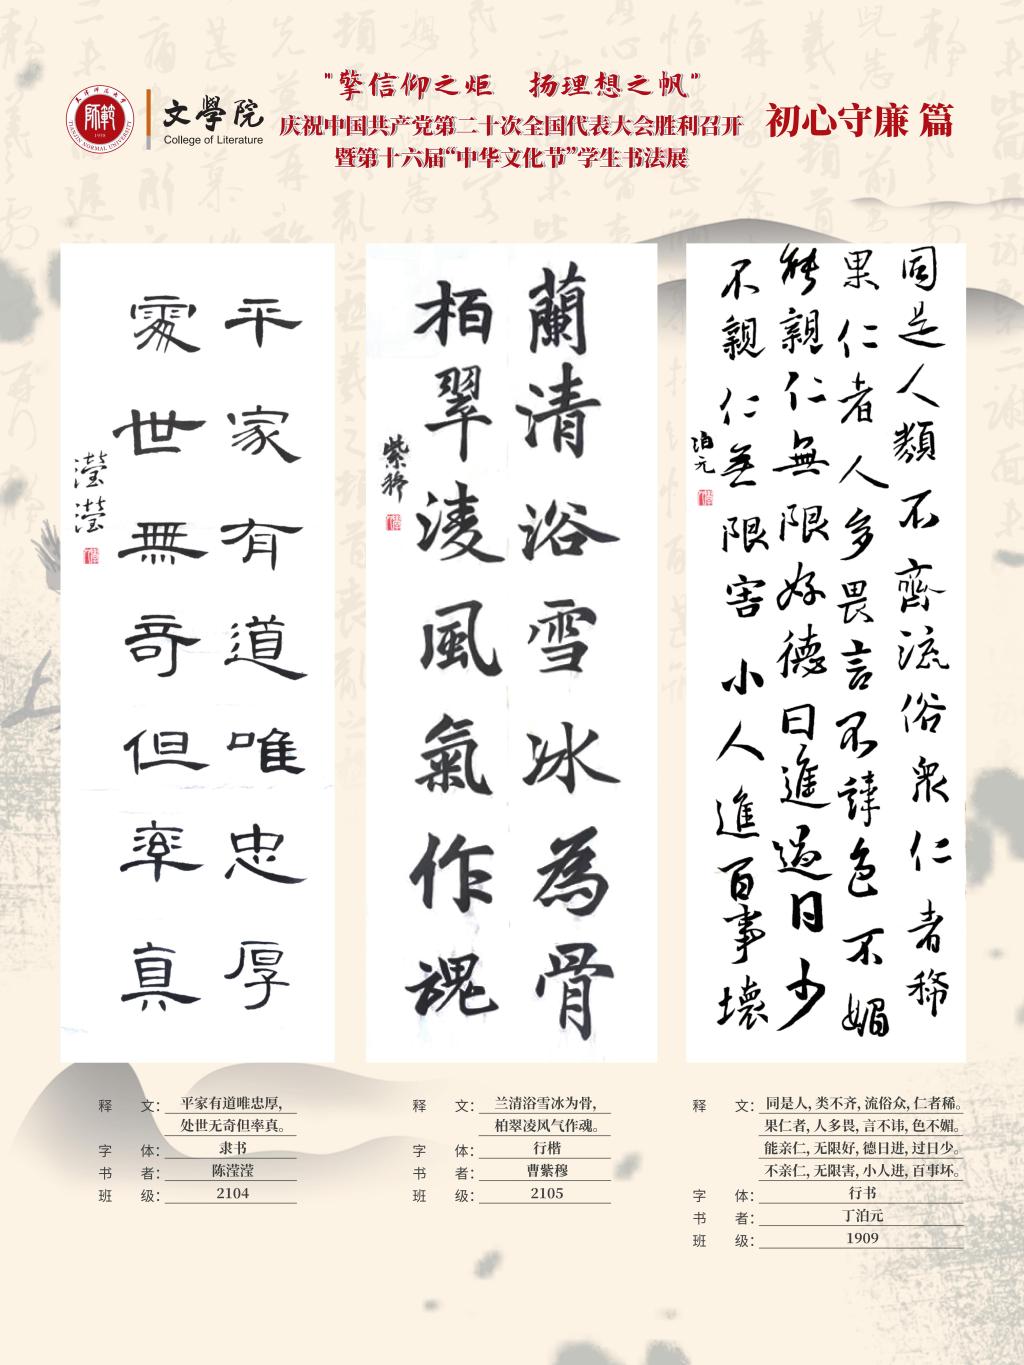 師範
天津师范大学
TIANJIN NORMAL UNIVERSITY
1958
文學院
College of Literature
"擎信仰之炬 扬理想之帆"
庆祝中国共产党第二十次全国代表大会胜利召开
暨第十六届“中华文化节”学生书法展
初心守廉 篇
平家有道唯忠厚
處世無奇但率真
瀅瀅
蘭清浴雪冰為骨
栢翠凌風氣作魂
紫穆
同是人類不齊流俗衆仁者稀
果仁者人多畏言不諱色不媚
能親仁無限好德日進過日少
不親仁無限害小人進百事壞
泊元
释 文： 平家有道唯忠厚，
处世无奇但率真。
字 体： 隶书
书 者： 陈滢滢
班 级： 2104
释 文： 兰清浴雪冰为骨，
柏翠凌风气作魂。
字 体： 行楷
书 者： 曹紫穆
班 级： 2105
释 文： 同是人，类不齐，流俗众，仁者稀。
果仁者，人多畏，言不讳，色不媚。
能亲仁，无限好，德日进，过日少。
不亲仁，无限害，小人进，百事坏。
字 体： 行书
书 者： 丁泊元
班 级： 1909